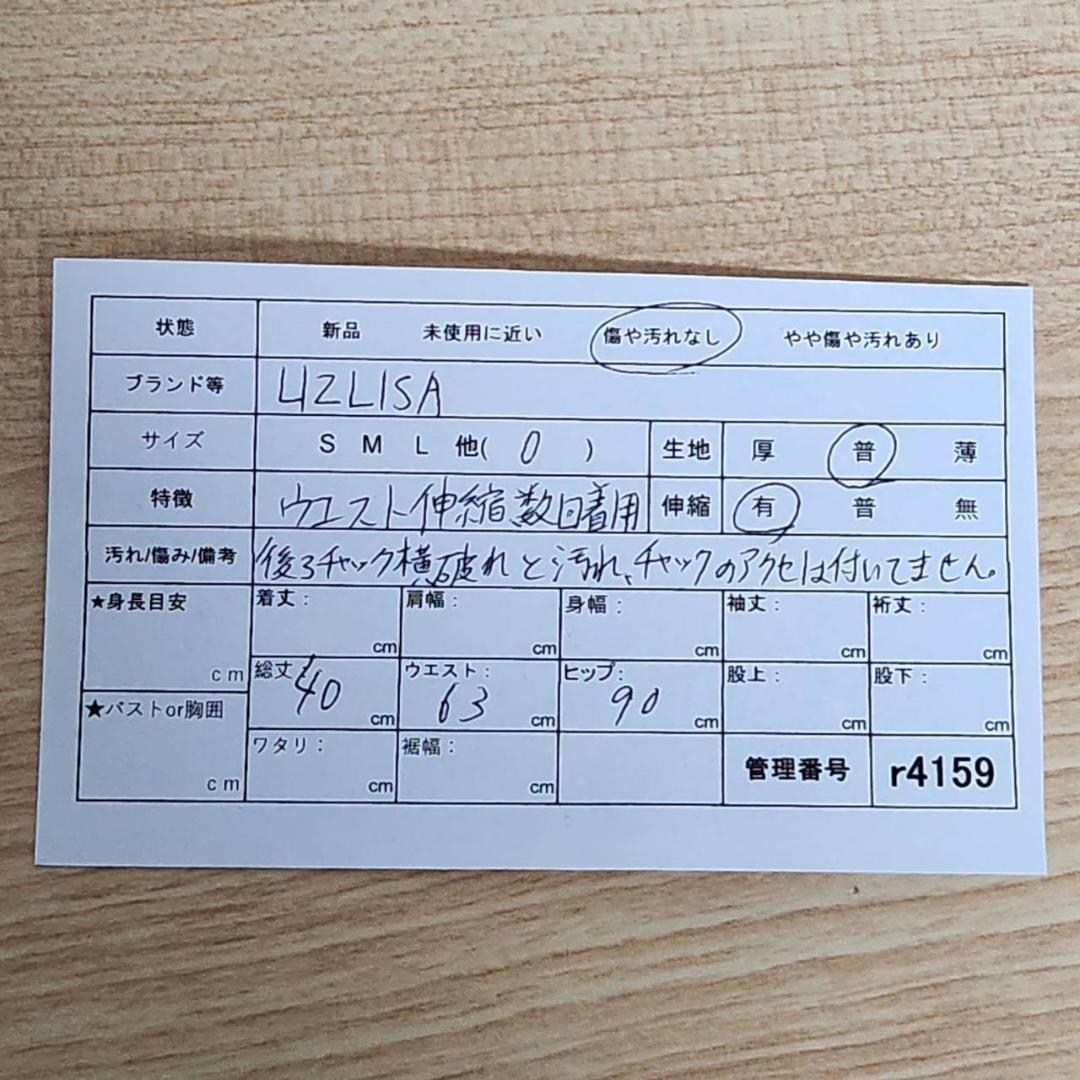 状態 新品 未使用に近い 傷や汚れなし やや傷や汚れあり
ブランド等 LIZLISA
サイズ S M L 他( 0 ) 生地 厚 普 薄
特徴 ウエスト伸縮 数回着用 伸縮 有 普 無
汚れ/傷み/備考 後ろチャック横破れと汚れ、チャックのアクセは付いてません。
★身長目安 cm 着丈: cm 肩幅: cm 身幅: cm 袖丈: cm 裄丈: cm
総丈 40 cm ウエスト: 63 cm ヒップ: 90 cm 股上: cm 股下: cm
★バストor胸囲 cm ワタリ: cm 裾幅: cm 管理番号 r4159